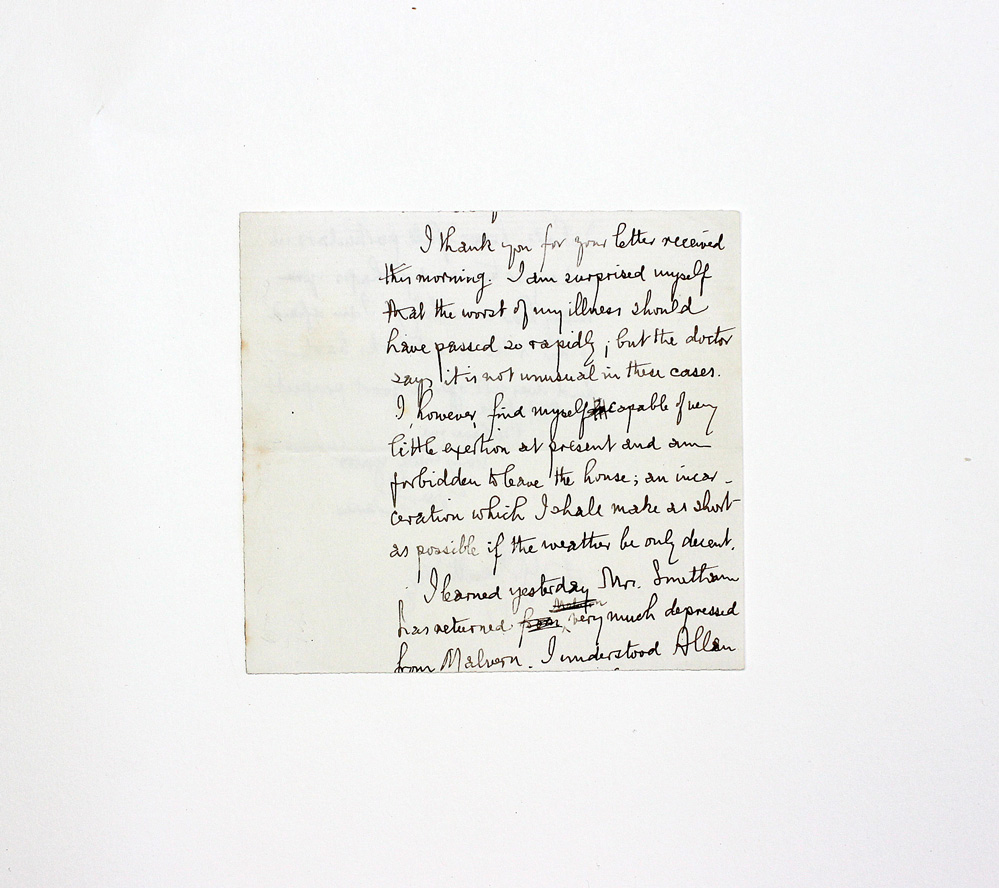 I thank you for your letter received
this morning. I am surprised myself
that the worst of my illness should
have passed so rapidly; but the doctor
says it is not unusual in these cases.
I, however, find myself capable of very
little exertion at present and am
forbidden to leave the house; an incar-
ceration which I shall make as short
as possible if the weather be only decent.
I learned yesterday Mrs. Smetham
has returned from very much depressed
from Malvern. I understood Allan